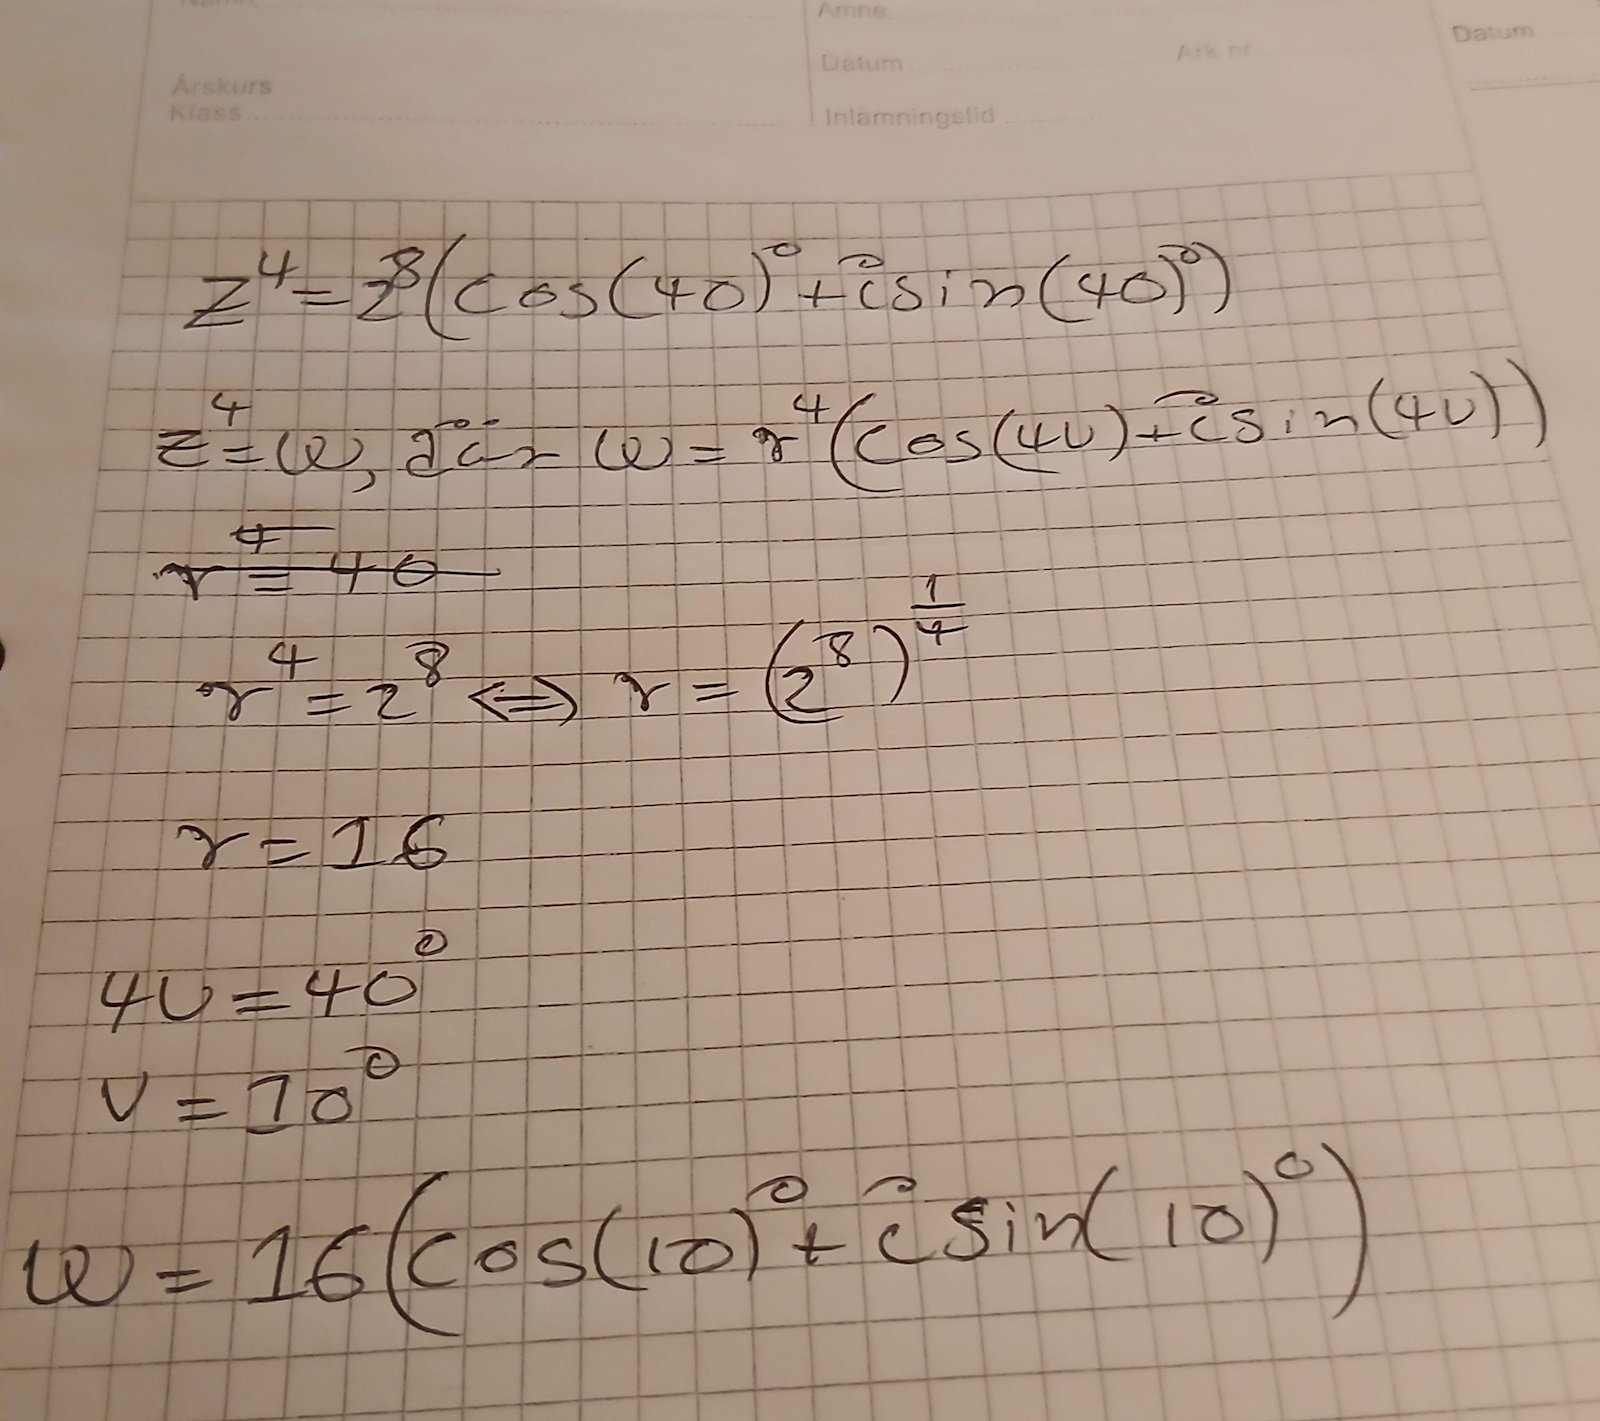 Namn
Ämne
Datum
Ark nr
Datum
Årskurs
Klass
Inlämningstid
z⁴=2⁸(cos(40)°+i sin(40)°)
z⁴=w, där w=r⁴(cos(4v)+i sin(4v))
r⁴=40
r⁴=2⁸ ⇔ r=(2⁸)^(1/4)
r=16
4v=40°
v=10°
w=16(cos(10)°+i sin(10)°)